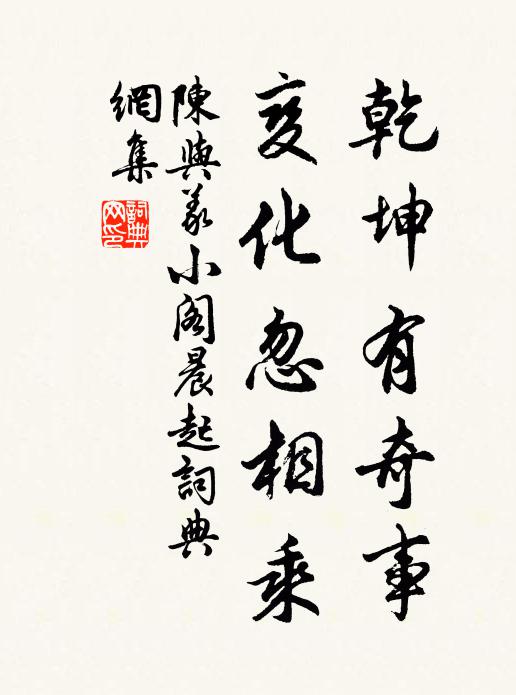 乾坤有奇事
変化忽相乘
陳與義小閣晨起詞典
網集
詞典网印